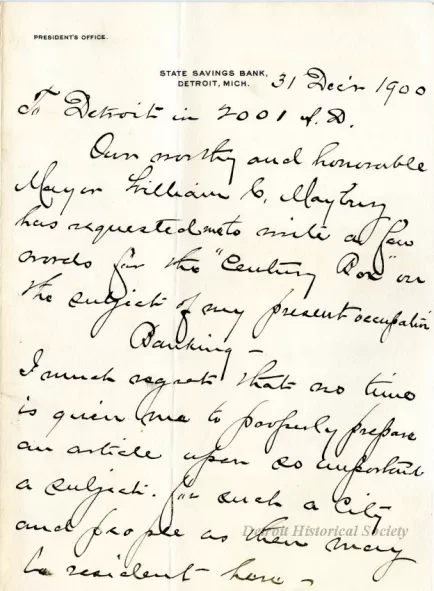 PRESIDENT'S OFFICE.
STATE SAVINGS BANK,
DETROIT, MICH.
31 Dec'r 1900
To Detroit in 2001 A.D.
Our worthy and honorable
Mayor William C. Maybury
has requested me to write a few
words for the "Century Box" on
the subject of my present occupation
Banking -
I much regret that no time
is given me to properly prepare
an article upon so important
a subject. for such a City
and people as then may
be resident here -
Detroit Historical Society